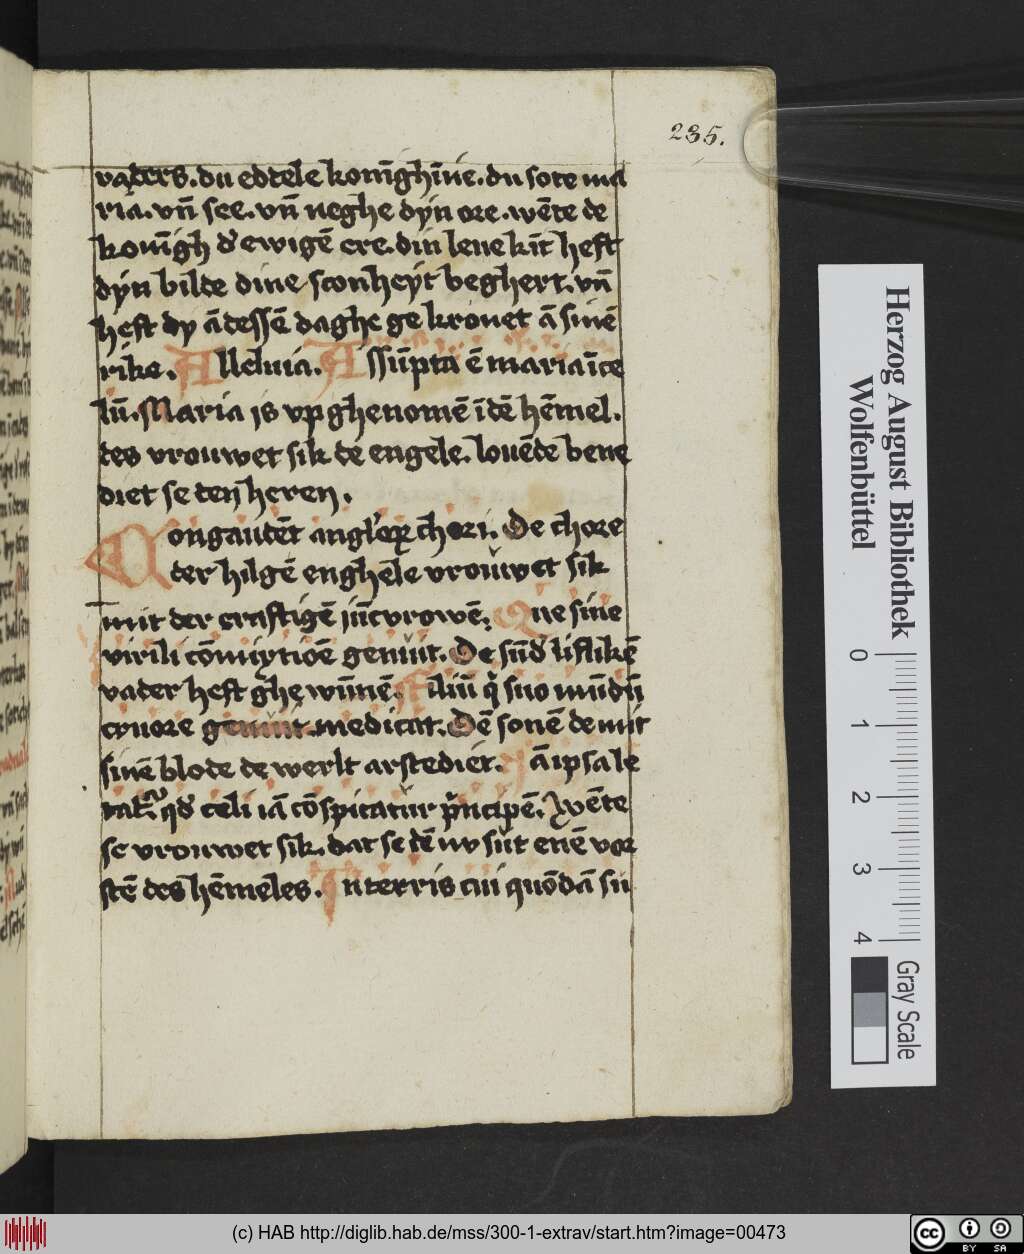 235.
vaders. du eddele konīghīne. du sote ma
ria. vn̄ see. vn̄ neghe dyn ore. wēte de
konīgh d' ewigē ere. din leue kīt heft
dyn bilde dine sconheyt beghert. vn̄
heft dy ā dessē daghe ge kronet ā sinē
rike. Alleluia. Assūpta ē maria ī ce
lū. Maria is vp ghenomē ī dē hēmel.
des vrouwet sik de engele. louēde bene
diet se den heren.
Congaudēt angl'oꝝ chori. De chore
der hilgē enghele vrouwet sik
mit der craftigē jūcvrowē. Que sine
virili cōmixtiōe genuit. De sūd' liflikē
vader heft ghe wūnē. Filiū q̄ suo mūdū
cruore medicat. Dē sonē de mit
sinē blode de werlt arstediet. Nā ip̄a le
tat' qd' celi iā cōspicatur p̄ncipē. Wēte
se vrouwet sik. dat se dē nv sut enē vor
stē des hēmeles. In terris cui quōdā su
Herzog August Bibliothek
Wolfenbüttel
0 1 2 3 4
Gray Scale
(c) HAB http://diglib.hab.de/mss/300-1-extrav/start.htm?image=00473
cc BY SA